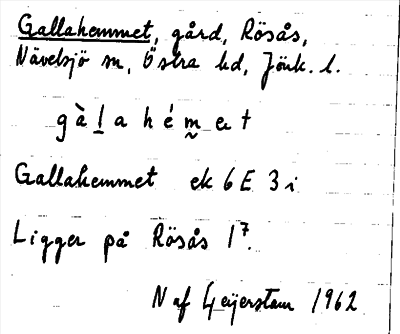 Gallahemmet, gård, Rösås,
Nävelsjö sn, Östra hd, Jönk. l.
gàlahémet
Gallahemmet ek 6E 3i
Ligger på Rösås 1⁷.
N af Geijerstam 1962